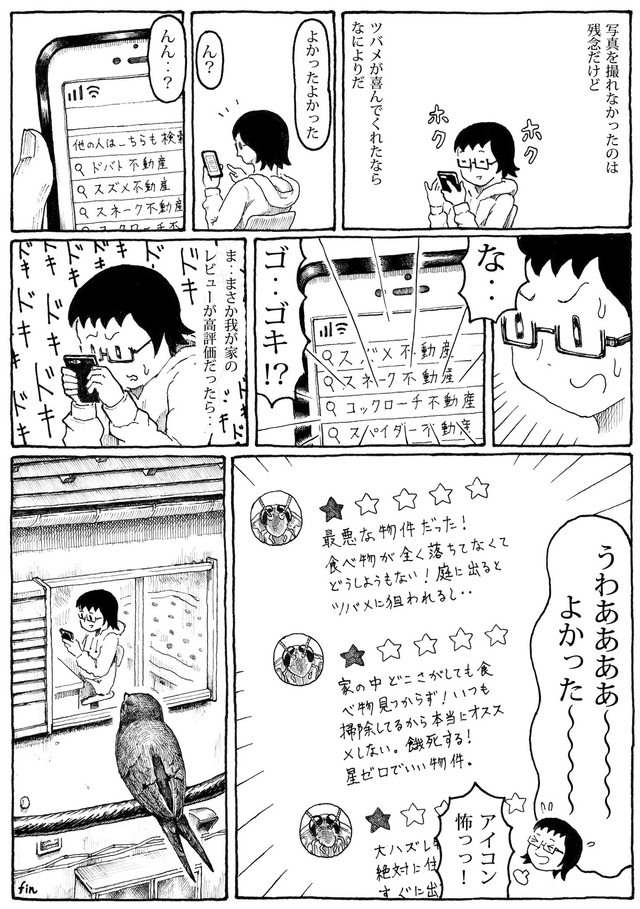 写真を撮れなかったのは
残念だけど
ツバメが喜んでくれたなら
なによりだ
ホク
ホク
よかったよかった
ん?
んん‥?
他の人は こちらも検索
ドバト不動産
スズメ不動産
スネーク不動産
コックローチ不
な‥
スズメ不動産
スネーク不動産
コックローチ不動産
スパイダー不動産
ゴ‥ゴキ!?
ま‥まさか我が家の
レビューが高評価だったら‥
ドキ
ドキ
ドキ
ドキ
ドキ
ドキ
ドキ
ドキ
最悪な物件だった!
食べ物が全く落ちてなくて
どうしようもない!庭に出ると
ツバメに狙われるし‥
家の中どこさがしても食
べ物見つからず!いつも
掃除してるから本当にオスス
メしない。餓死する!
星ゼロでいい物件。
大ハズレ
絶対に住
すぐに出
うわあああああ〜
よかった〜
アイコン
怖っっ!
fin